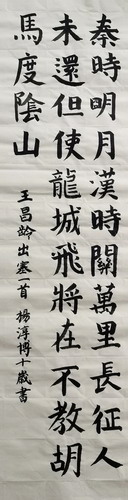 秦時明月漢時關萬里長征人
未還但使龍城飛將在不教胡
馬度陰山
王昌齡出塞一首 楊淳博十歲書